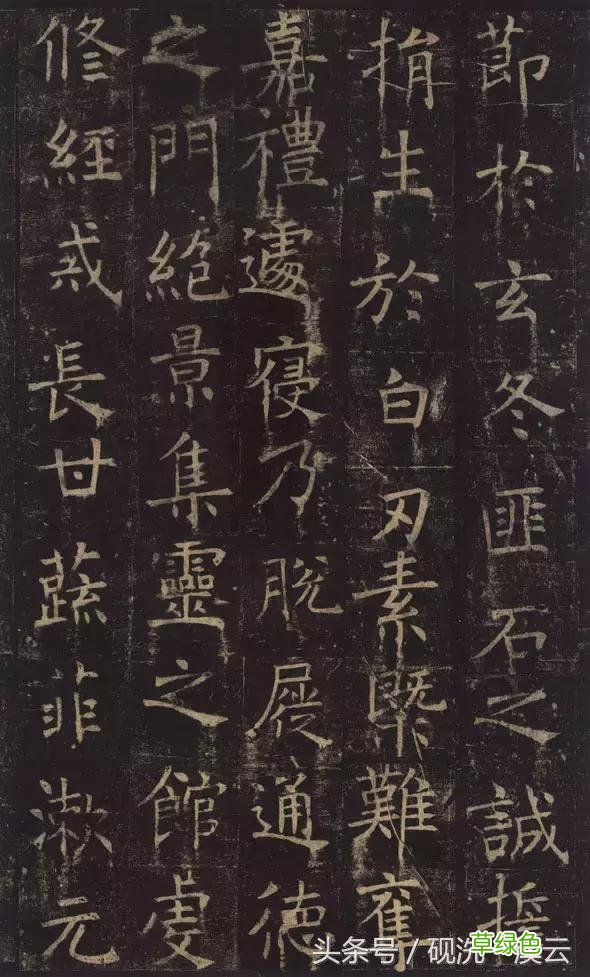 節於玄冬匪石之誠誓
捐生於白刃素槩難奪
嘉禮遽寢乃脫屣通德
之門絕景集靈之館虔
修經戒長甘蔬菲漱元
头条号 / 砚洗 溪云
草绿色